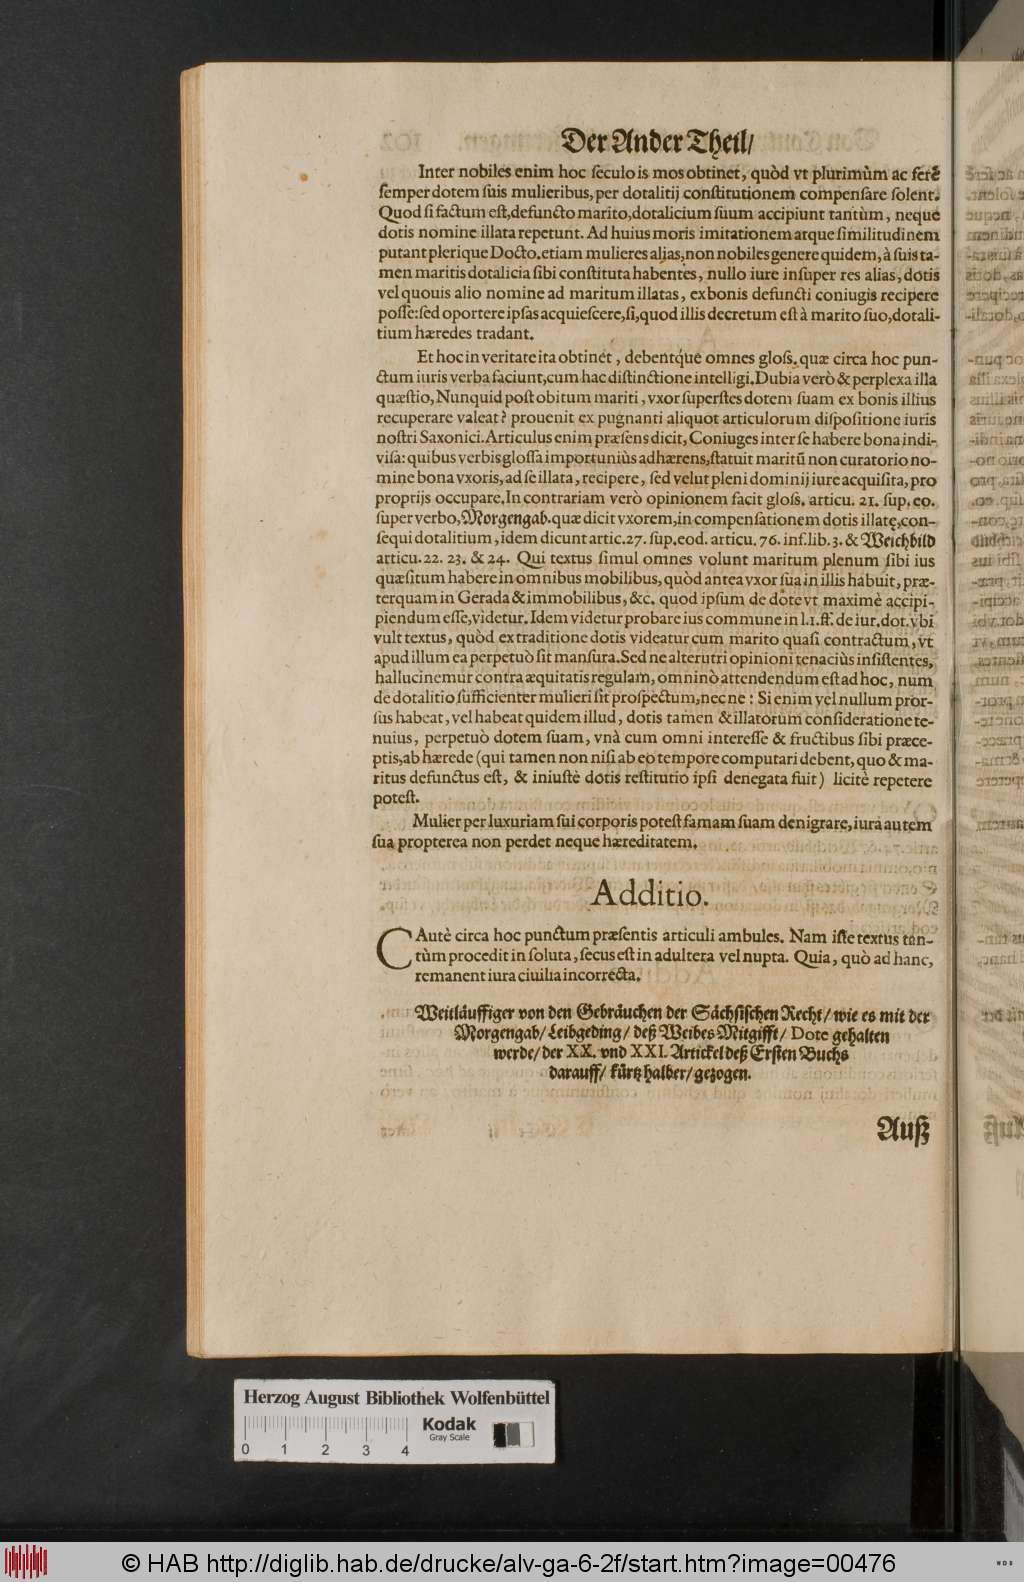 Der Ander Theil/
Inter nobiles enim hoc seculo is mos obtinet, quòd vt plurimùm ac ferè
semper dotem suis mulieribus, per dotalitij constitutionem compensare solent.
Quod si factum est, defuncto marito, dotalicium suum accipiunt tantùm, neque
dotis nomine illata repetunt. Ad huius moris imitationem atque similitudinem
putant plerique Docto. etiam mulieres alias, non nobiles genere quidem, à suis ta-
men maritis dotalicia sibi constituta habentes, nullo iure insuper res alias, dotis
vel quouis alio nomine ad maritum illatas, ex bonis defuncti coniugis recipere
posse: sed oportere ipsas acquiescere, si, quod illis decretum est à marito suo, dotali-
tium hæredes tradant.
Et hoc in veritate ita obtinet, debentq́ue omnes gloss. quæ circa hoc pun-
ctum iuris verba faciunt, cum hac distinctione intelligi. Dubia verò & perplexa illa
quæstio, Nunquid post obitum mariti, vxor superstes dotem suam ex bonis illius
recuperare valeat? prouenit ex pugnanti aliquot articulorum dispositione iuris
nostri Saxonici. Articulus enim præsens dicit, Coniuges inter se habere bona indi-
visa: quibus verbis glossa importuniùs adhærens, statuit maritū non curatorio no-
mine bona vxoris, ad se illata, recipere, sed velut pleni dominij iure acquisita, pro
proprijs occupare. In contrariam verò opinionem facit gloss. articu. 21. sup. eo.
super verbo, Morgengab. quæ dicit vxorem, in compensationem dotis illatę, con-
sequi dotalitium, idem dicunt artic. 27. sup. eod. articu. 76. inf. lib. 3. & Weichbild
articu. 22. 23. & 24. Qui textus simul omnes volunt maritum plenum sibi ius
quæsitum habere in omnibus mobilibus, quòd antea vxor sua in illis habuit, præ-
terquam in Gerada & immobilibus, &c. quod ipsum de dote vt maximè accipi-
piendum esse, videtur. Idem videtur probare ius commune in l. 1. ff. de iur. dot. vbi
vult textus, quòd ex traditione dotis videatur cum marito quasi contractum, vt
apud illum ea perpetuò sit mansura. Sed ne alterutri opinioni tenaciùs insistentes,
hallucinemur contra æquitatis regulam, omninò attendendum est ad hoc, num
de dotalitio sufficienter mulieri sit prospectum, nec ne: Si enim vel nullum pror-
sus habeat, vel habeat quidem illud, dotis tamen & illatorum consideratione te-
nuius, perpetuò dotem suam, vnà cum omni interesse & fructibus sibi præce-
ptis, ab hærede (qui tamen non nisi ab eo tempore computari debent, quo & ma-
ritus defunctus est, & iniustè dotis restitutio ipsi denegata fuit) licitè repetere
potest.
Mulier per luxuriam sui corporis potest famam suam denigrare, iura autem
sua propterea non perdet neque hæreditatem.
Additio.
CAutè circa hoc punctum præsentis articuli ambules. Nam iste textus tan-
tùm procedit in soluta, secus est in adultera vel nupta. Quia, quò ad hanc,
remanent iura ciuilia incorrecta.
Weitläuffiger von den Gebräuchen der Sächsischen Recht/ wie es mit der
Morgengab/ Leibgeding/ deß Weibes Mitgifft/ Dote gehalten
werde/ der XX. vnd XXI. Artickel deß Ersten Buchs
darauff/ kürtz halber/ gezogen.
Auß
Herzog August Bibliothek Wolfenbüttel
Kodak
Gray Scale
0 1 2 3 4
© HAB http://diglib.hab.de/drucke/alv-ga-6-2f/start.htm?image=00476